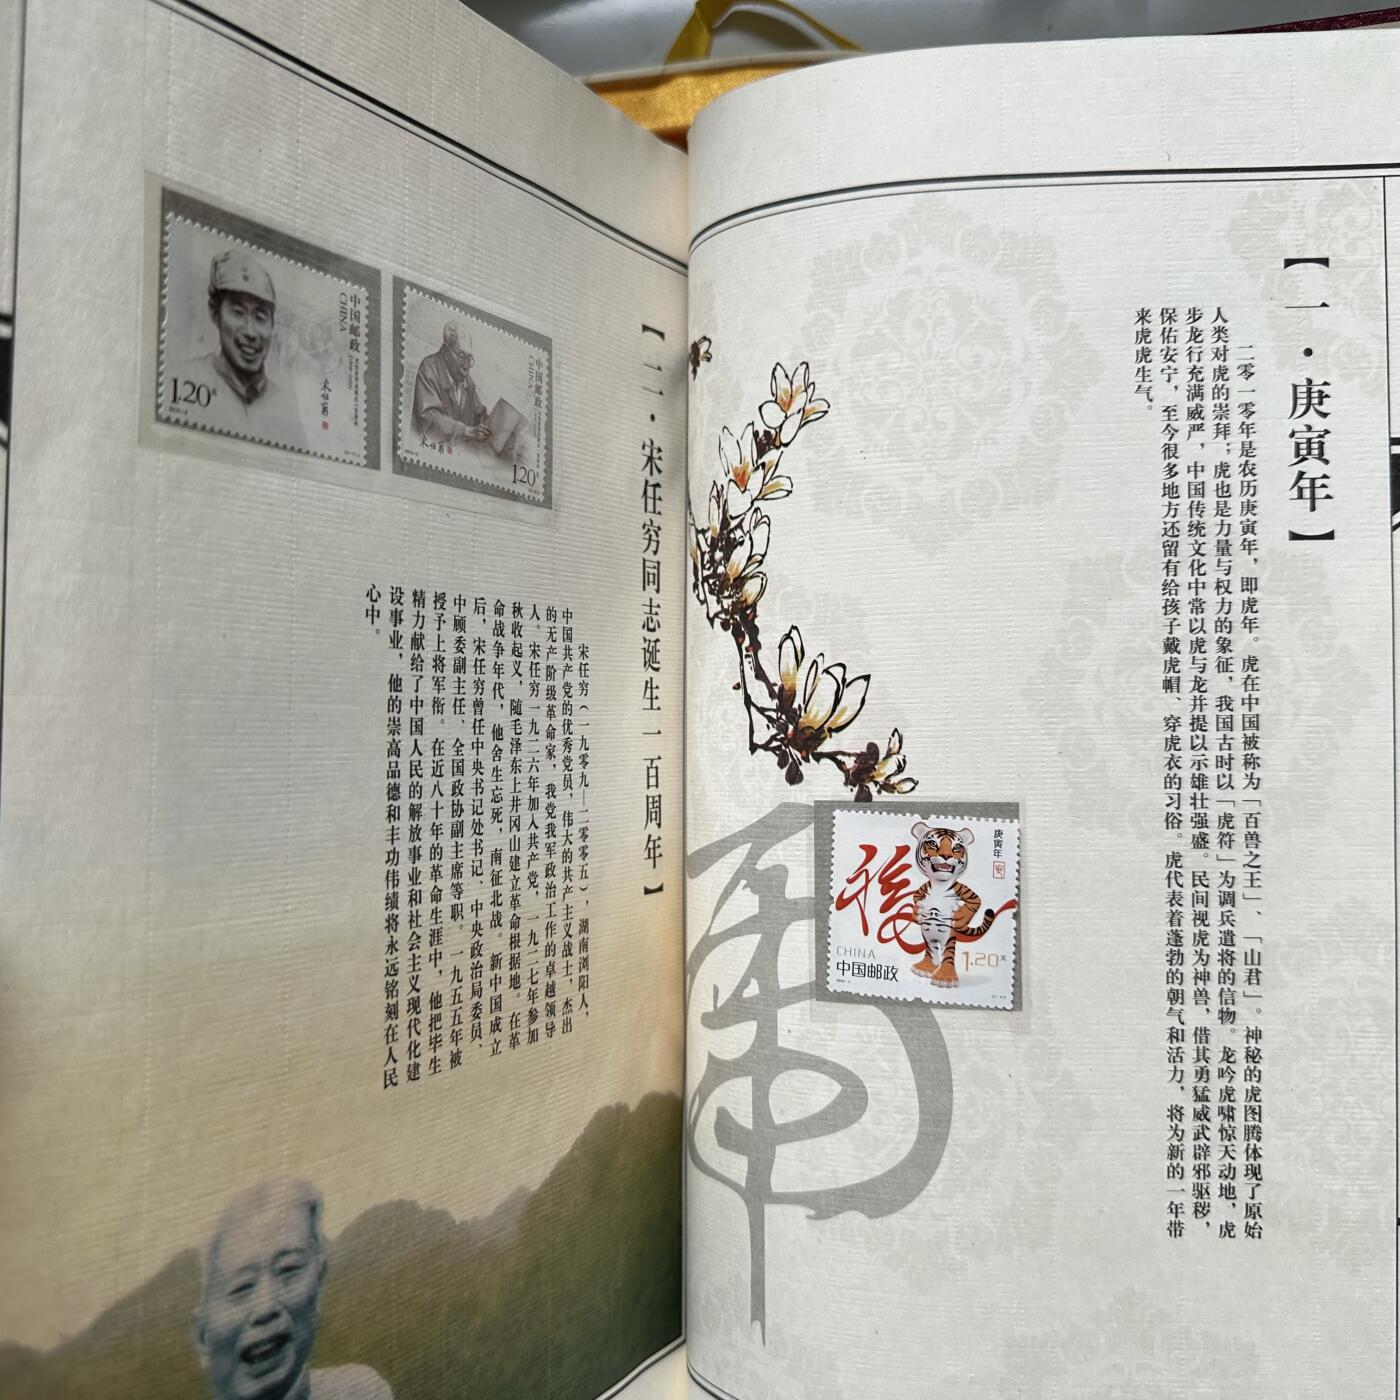 【一·庚寅年】
二零一零年是农历庚寅年，即虎年。虎在中国被称为「百兽之王」、「山君」。神秘的虎图腾体现了原始
人类对虎的崇拜；虎也是力量与权力的象征，我国古时以「虎符」为调兵遣将的信物。龙吟虎啸惊天动地，虎
步龙行充满威严，中国传统文化中常以虎与龙并提以示雄壮强盛。民间视虎为神兽，借其勇猛威武辟邪驱秽，
保佑安宁，至今很多地方还留有给孩子戴虎帽、穿虎衣的习俗。虎代表着蓬勃的朝气和活力，将为新的一年带
来虎虎生气。
庚寅年
福
CHINA
中国邮政
1.20元
虎
【二·宋任穷同志诞生一百周年】
宋任穷（一九零九—二零零五），湖南浏阳人，
中国共产党的优秀党员，伟大的共产主义战士，杰出
的无产阶级革命家，我党我军政治工作的卓越领导
人。宋任穷一九二六年加入共产党，一九二七年参加
秋收起义，随毛泽东上井冈山建立革命根据地。在革
命战争年代，他舍生忘死，南征北战。新中国成立
后，宋任穷曾任中央书记处书记、中央政治局委员、
中顾委副主任、全国政协副主席等职。一九五五年被
授予上将军衔。在近八十年的革命生涯中，他把毕生
精力献给了中国人民的解放事业和社会主义现代化建
设事业，他的崇高品德和丰功伟绩将永远铭刻在人民
心中。
中国邮政
CHINA
宋任穷
1.20元
中国邮政
CHINA
宋任穷
1.20元